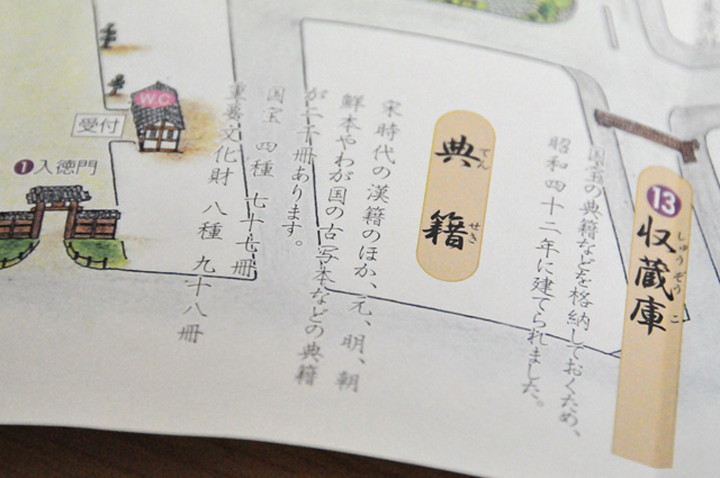 13 収蔵庫
しゅうぞうこ
国宝の典籍などを格納しておくため、
昭和四十二年に建てられました。
典籍
てんせき
宋時代の漢籍のほか、元、明、朝
鮮本やわが国の古写本などの典籍
が二千冊あります。
国宝 四種 七十七冊
重要文化財 八種 九十八冊
W.C
受付
1 入徳門